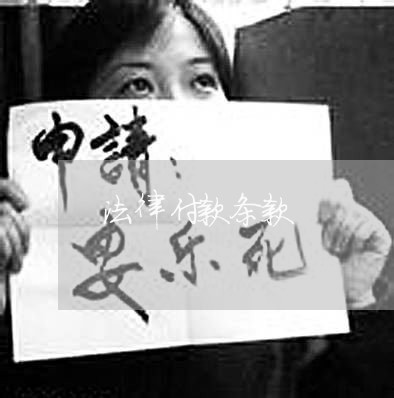 申請：
法律付款条款
要乐死